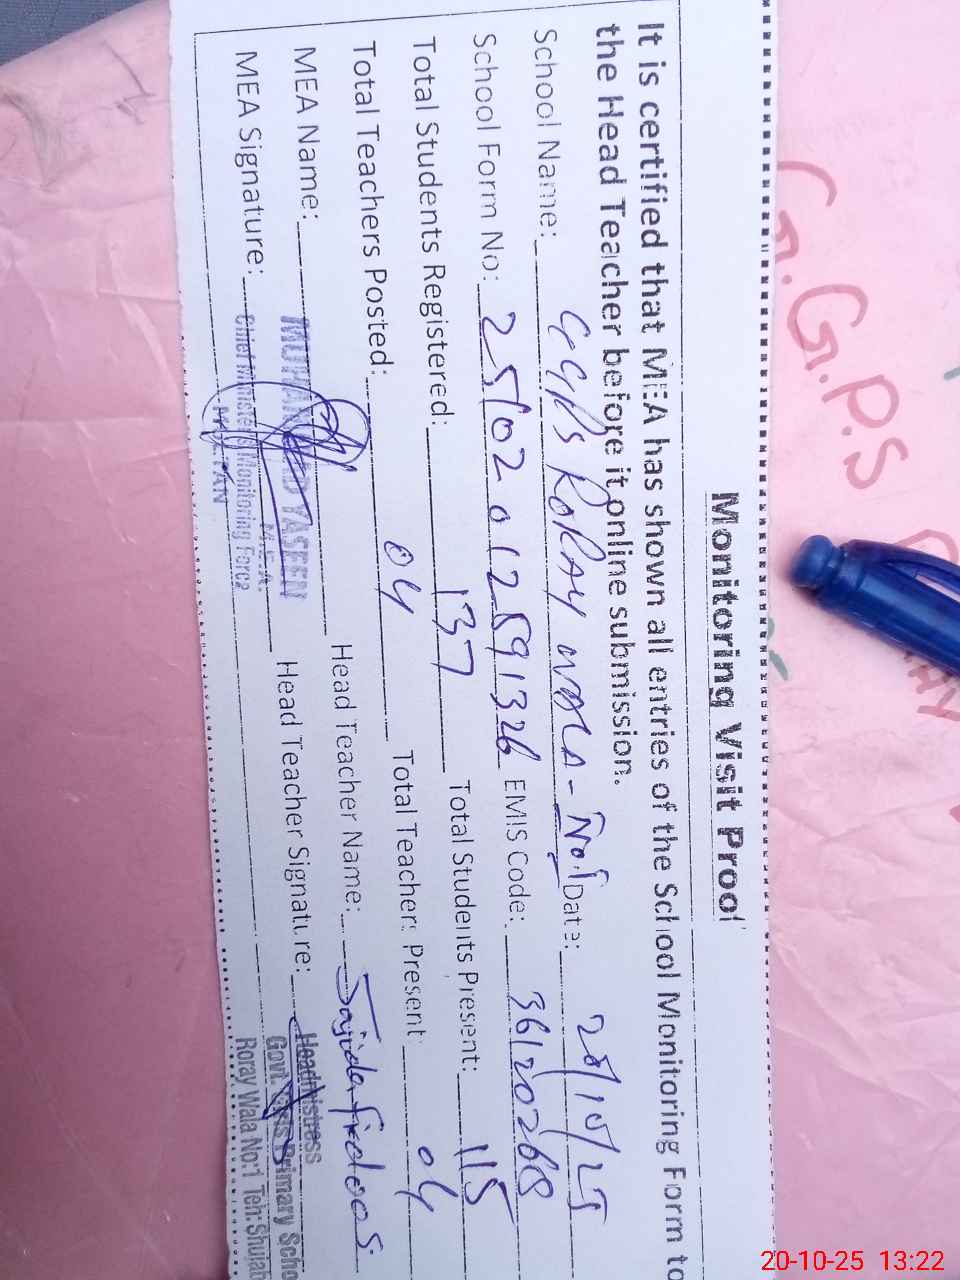 Monitoring Visit Proof
It is certified that MEA has shown all entries of the School Monitoring Form to
the Head Teacher before it online submission.
School Name: GGPS RORAY WALA - No.1 Date: 20/10/25
School Form No: 25102012591326 EMIS Code: 36120268
Total Students Registered: 137 Total Students Present: 115
Total Teachers Posted: 04 Total Teachers Present 04
MEA Name: MUHAMMAD YASEEN Head Teacher Name: Sajida firdoos
M.E.A.
MEA Signature: Chief Minister's Monitoring Force Head Teacher Signature: Headmistress
MULTAN
Govt. Girls Primary Scho
Roray Wala No:1 Teh: Shujab
G.G.P.S
20-10-25 13:22